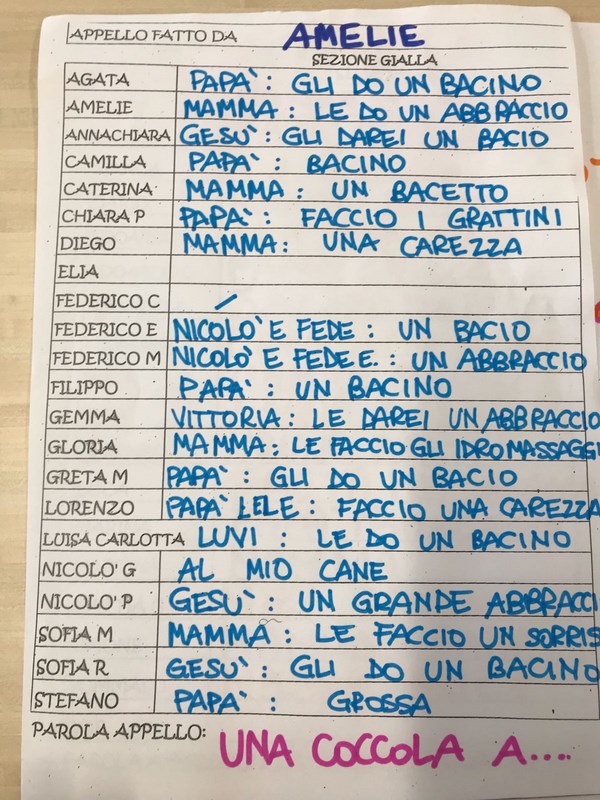 APPELLO FATTO DA AMELIE
SEZIONE GIALLA
AGATA PAPA': GLI DO UN BACINO
AMELIE MAMMA: LE DO UN ABBRACCIO
ANNACHIARA GESU': GLI DAREI UN BACIO
CAMILLA PAPA': BACINO
CATERINA MAMMA: UN BACETTO
CHIARA P PAPA': FACCIO I GRATTINI
DIEGO MAMMA: UNA CAREZZA
ELIA
FEDERICO C /
FEDERICO E NICOLO' E FEDE: UN BACIO
FEDERICO M NICOLO' E FEDE E.: UN ABBRACCIO
FILIPPO PAPA': UN BACINO
GEMMA VITTORIA: LE DAREI UN ABBRACCIO
GLORIA MAMMA: LE FACCIO GLI IDROMASSAGGI
GRETA M PAPA': GLI DO UN BACIO
LORENZO PAPA' LELE: FACCIO UNA CAREZZA
LUISA CARLOTTA LUVI: LE DO UN BACINO
NICOLO' G AL MIO CANE
NICOLO' P GESU': UN GRANDE ABBRACCI
SOFIA M MAMMA: LE FACCIO UN SORRIS
SOFIA R GESU': GLI DO UN BACINO
STEFANO PAPA': GROSSA
PAROLA APPELLO: UNA COCCOLA A....